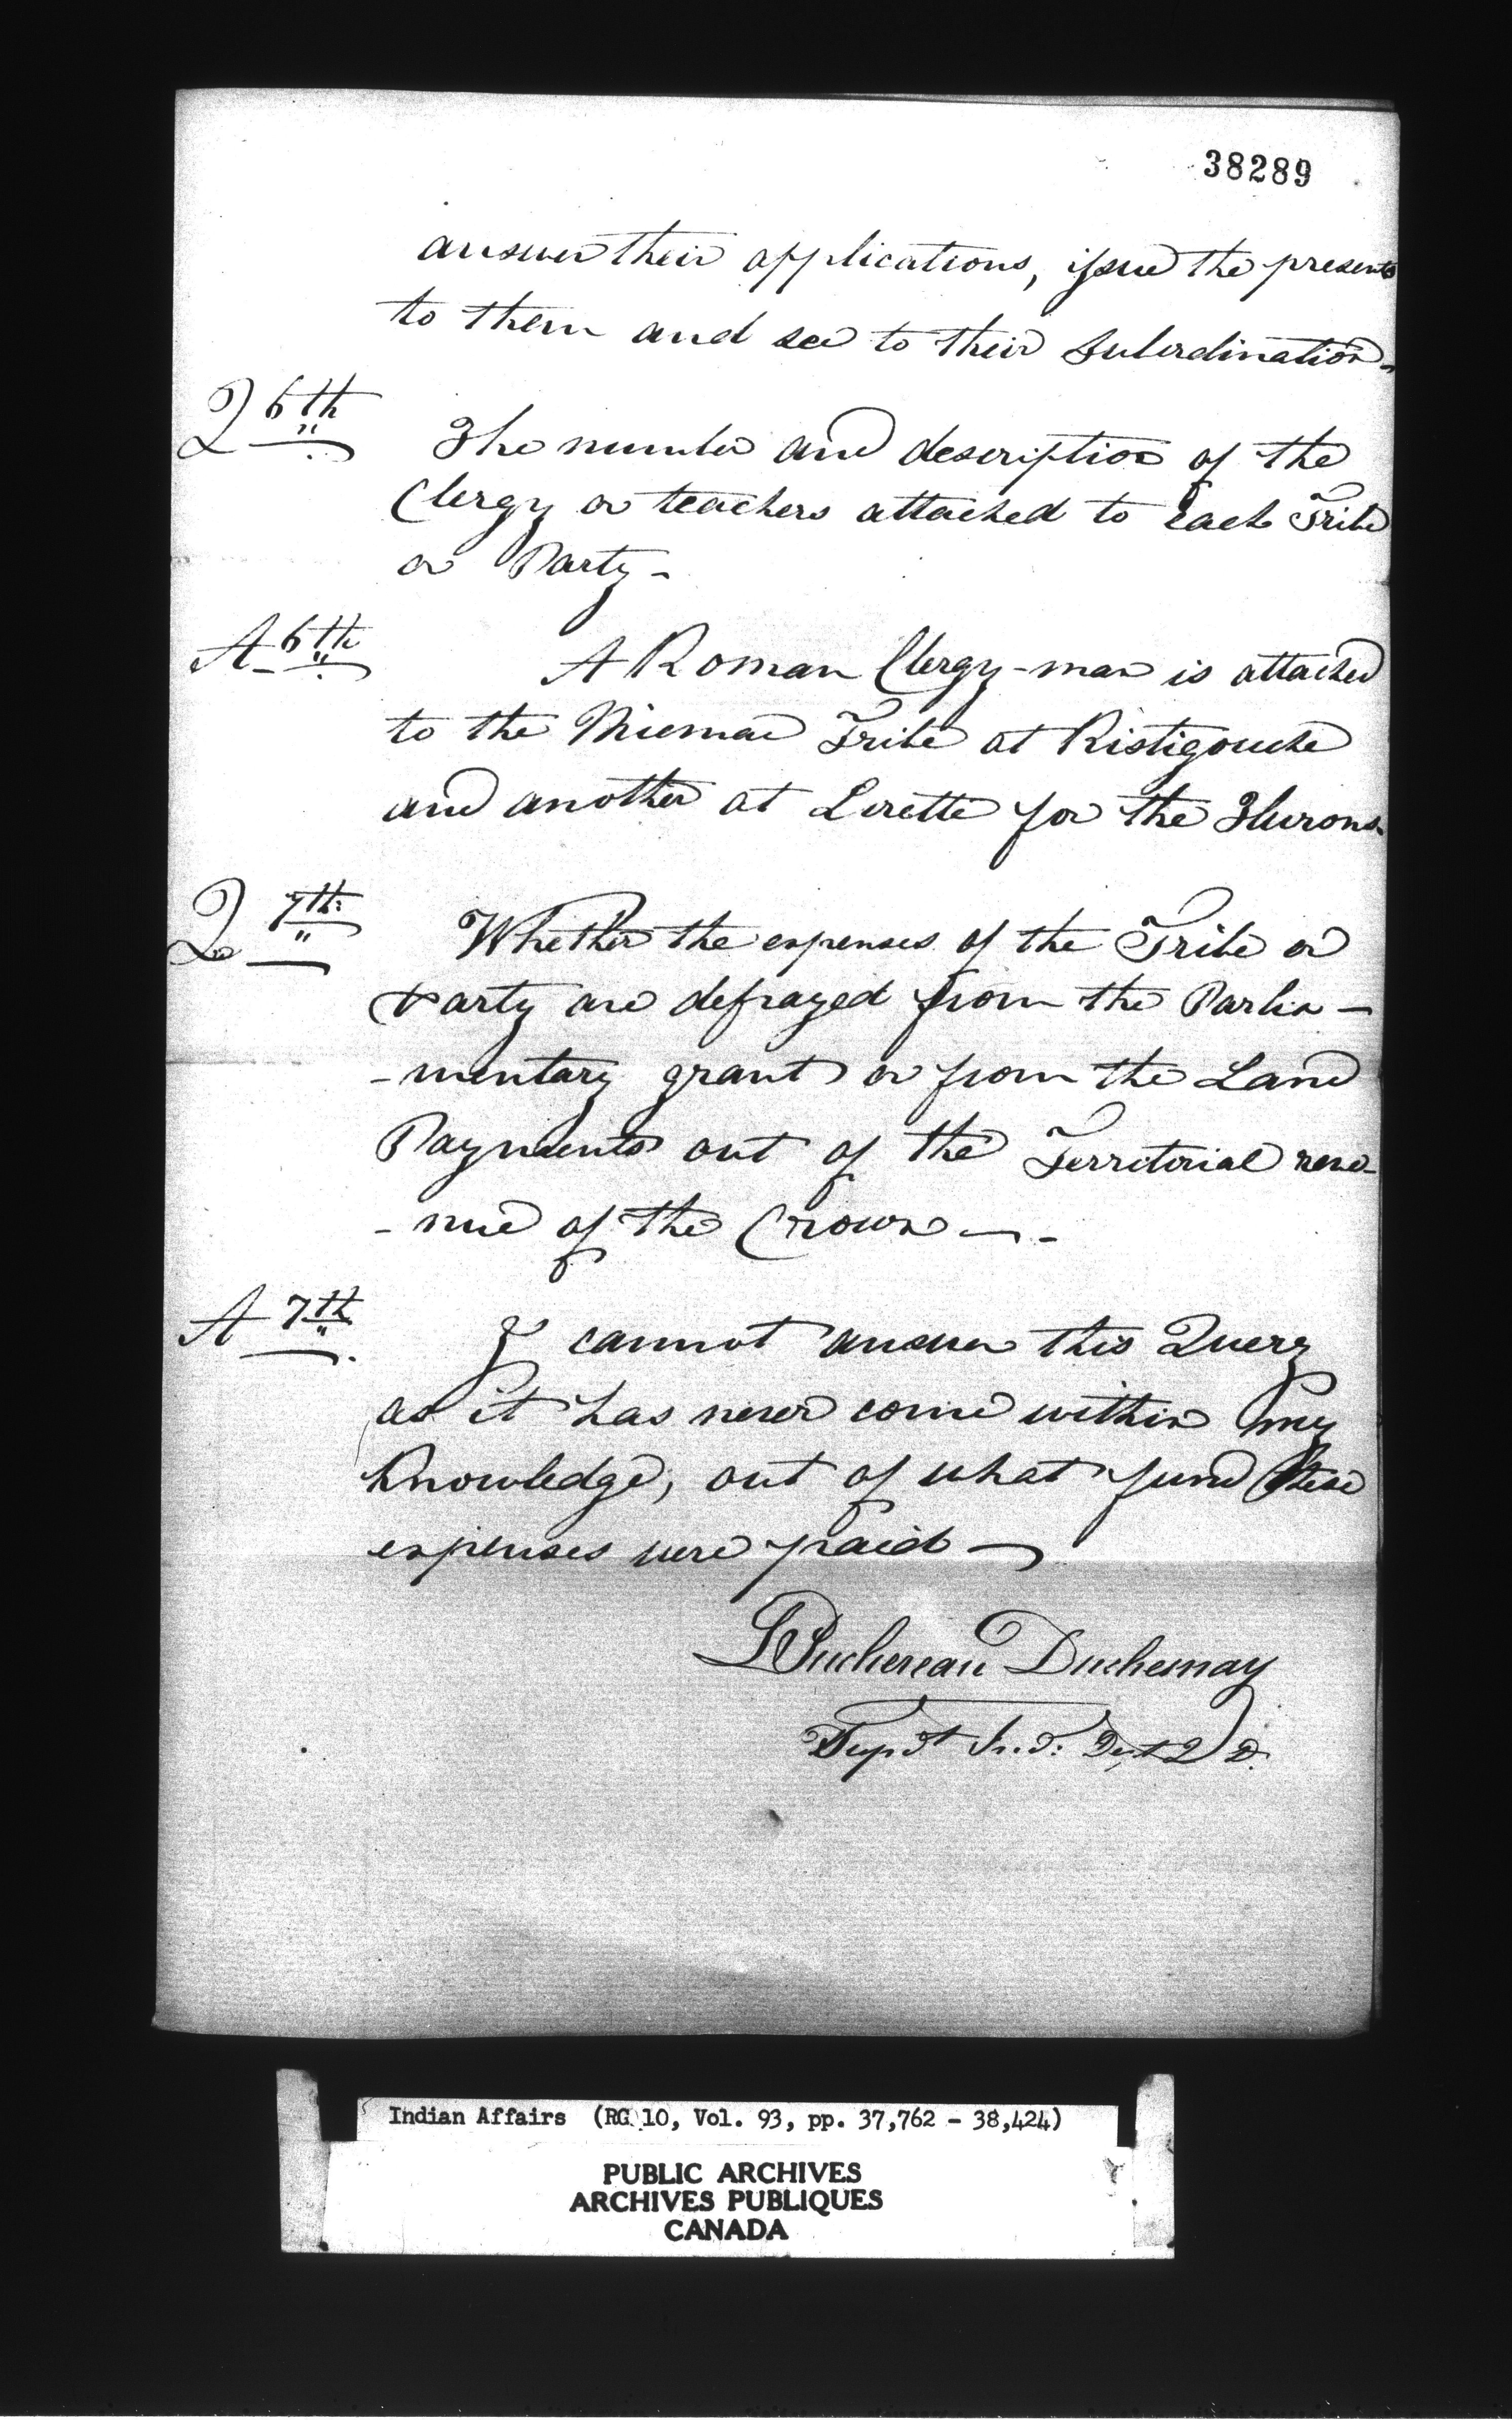 38289
answer their applications, issue the presents
to them and see to their subordination -
Q 6th The number and description of the
Clergy or teachers attached to each Tribe
or Party -
A 6th A Roman Clergy-man is attached
to the Micmac Tribe at Ristigouche
and another at Lorette for the Hurons
Q 7th: Whether the expenses of the Tribe or
Party are defrayed from the Parlia -
- mentary grant or from the Land
Payments out of the Territorial reve -
- nue of the Crown - -
A 7th I cannot answer this Query
as it has never come within my
Knowledge, out of what fund these
expenses were paid -
L Juchereau Duchesnay
Supdt Ind: Dept
Indian Affairs (RG 10, Vol. 93, pp. 37,762 - 38,424)
PUBLIC ARCHIVES
ARCHIVES PUBLIQUES
CANADA